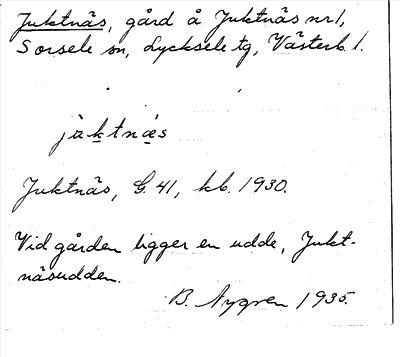 Juktnäs, gård å Juktnäs nr 1,
Sorsele sn, Lycksele tg, Västerb. l.
jäktnäs
Juktnäs, G. 41, kb. 1930.
Vid gården ligger en udde, Jukt-
näsudden.
B. Nygren 1935.